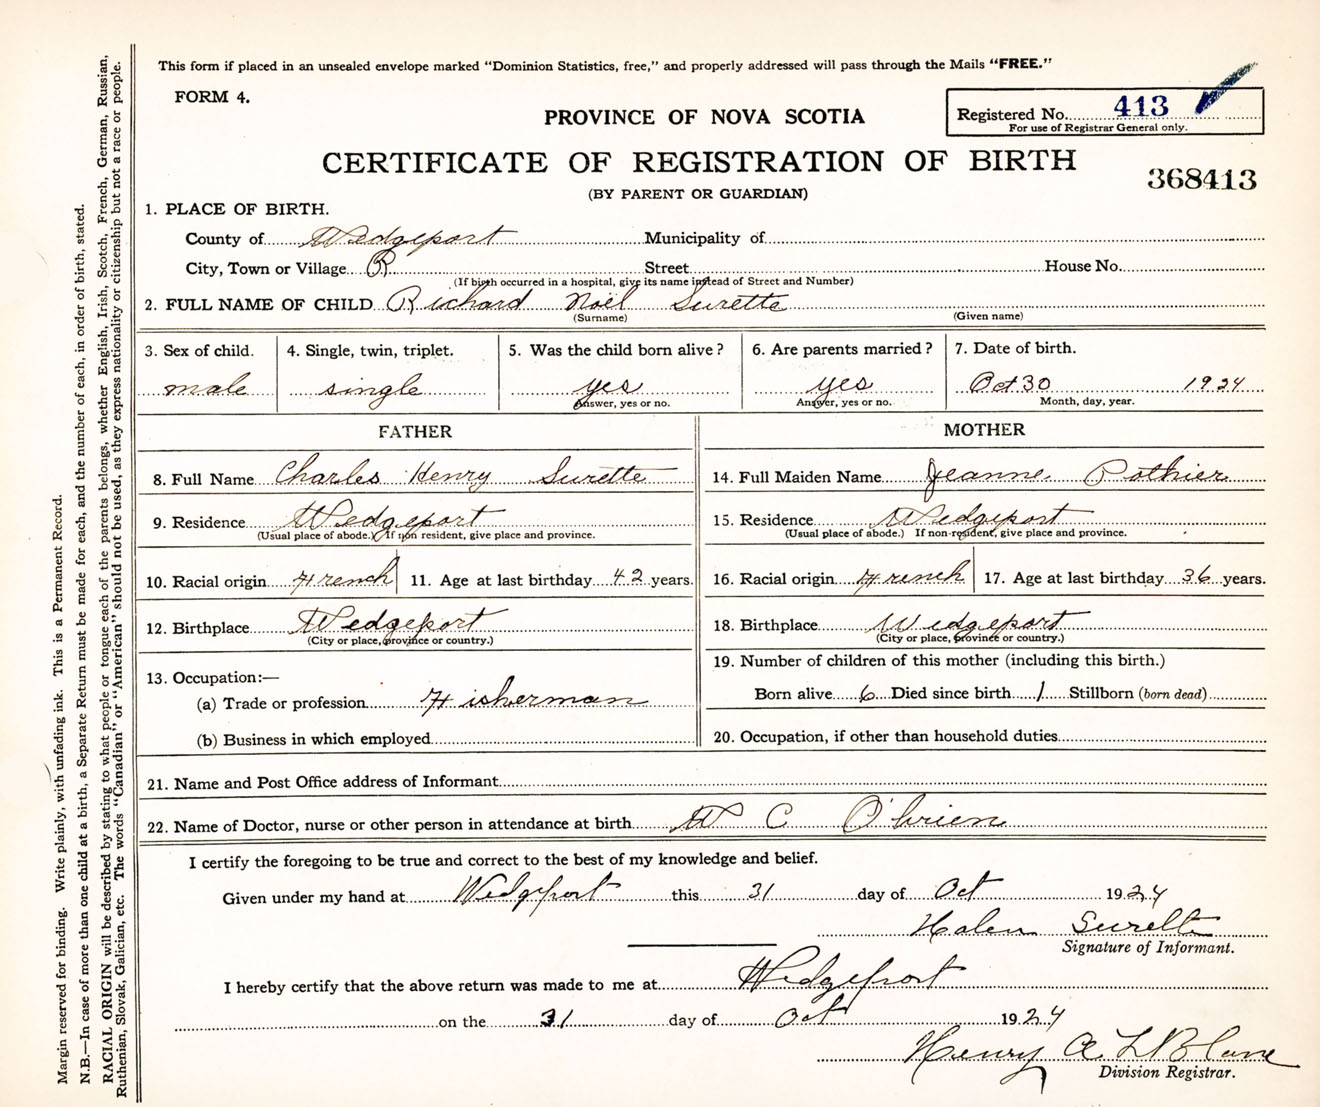 This form if placed in an unsealed envelope marked “Dominion Statistics, free,” and properly addressed will pass through the Mails “FREE.”
FORM 4.
PROVINCE OF NOVA SCOTIA
Registered No. 413
For use of Registrar General only.
CERTIFICATE OF REGISTRATION OF BIRTH
368413
(BY PARENT OR GUARDIAN)
1. PLACE OF BIRTH.
County of Wedgeport Municipality of
City, Town or Village R Street House No.
(If birth occurred in a hospital, give its name instead of Street and Number)
2. FULL NAME OF CHILD Richard Noël Surette
(Surname) (Given name)
3. Sex of child. 4. Single, twin, triplet. 5. Was the child born alive? 6. Are parents married? 7. Date of birth.
male single yes yes Oct 30 1924
Answer, yes or no. Answer, yes or no. Month, day, year.
FATHER MOTHER
8. Full Name Charles Henry Surette 14. Full Maiden Name Jeanne Pothier
9. Residence Wedgeport 15. Residence Wedgeport
(Usual place of abode.) If non resident, give place and province. (Usual place of abode.) If non-resident, give place and province.
10. Racial origin French 11. Age at last birthday 42 years. 16. Racial origin French 17. Age at last birthday 36 years.
12. Birthplace Wedgeport 18. Birthplace Wedgeport
(City or place, province or country.) (City or place, province or country.)
13. Occupation:— 19. Number of children of this mother (including this birth.)
(a) Trade or profession Fisherman Born alive 6 Died since birth 1 Stillborn (born dead)
(b) Business in which employed 20. Occupation, if other than household duties
21. Name and Post Office address of Informant
22. Name of Doctor, nurse or other person in attendance at birth W C O'brien
I certify the foregoing to be true and correct to the best of my knowledge and belief.
Given under my hand at Wedgeport this 31 day of Oct 1924
Halen Surette
Signature of Informant.
I hereby certify that the above return was made to me at Wedgeport
on the 31 day of Oct 1924
Henry A LeBlanc
Division Registrar.
Margin reserved for binding. Write plainly, with unfading ink. This is a Permanent Record.
N.B.—In case of more than one child at a birth, a Separate Return must be made for each, and the number of each, in order of birth, stated.
RACIAL ORIGIN will be described by stating to what people or tongue each of the parents belongs, whether English, Irish, Scotch, French, German, Russian,
Ruthenian, Slovak, Galician, etc. The words “Canadian” or “American” should not be used, as they express nationality or citizenship but not a race or people.